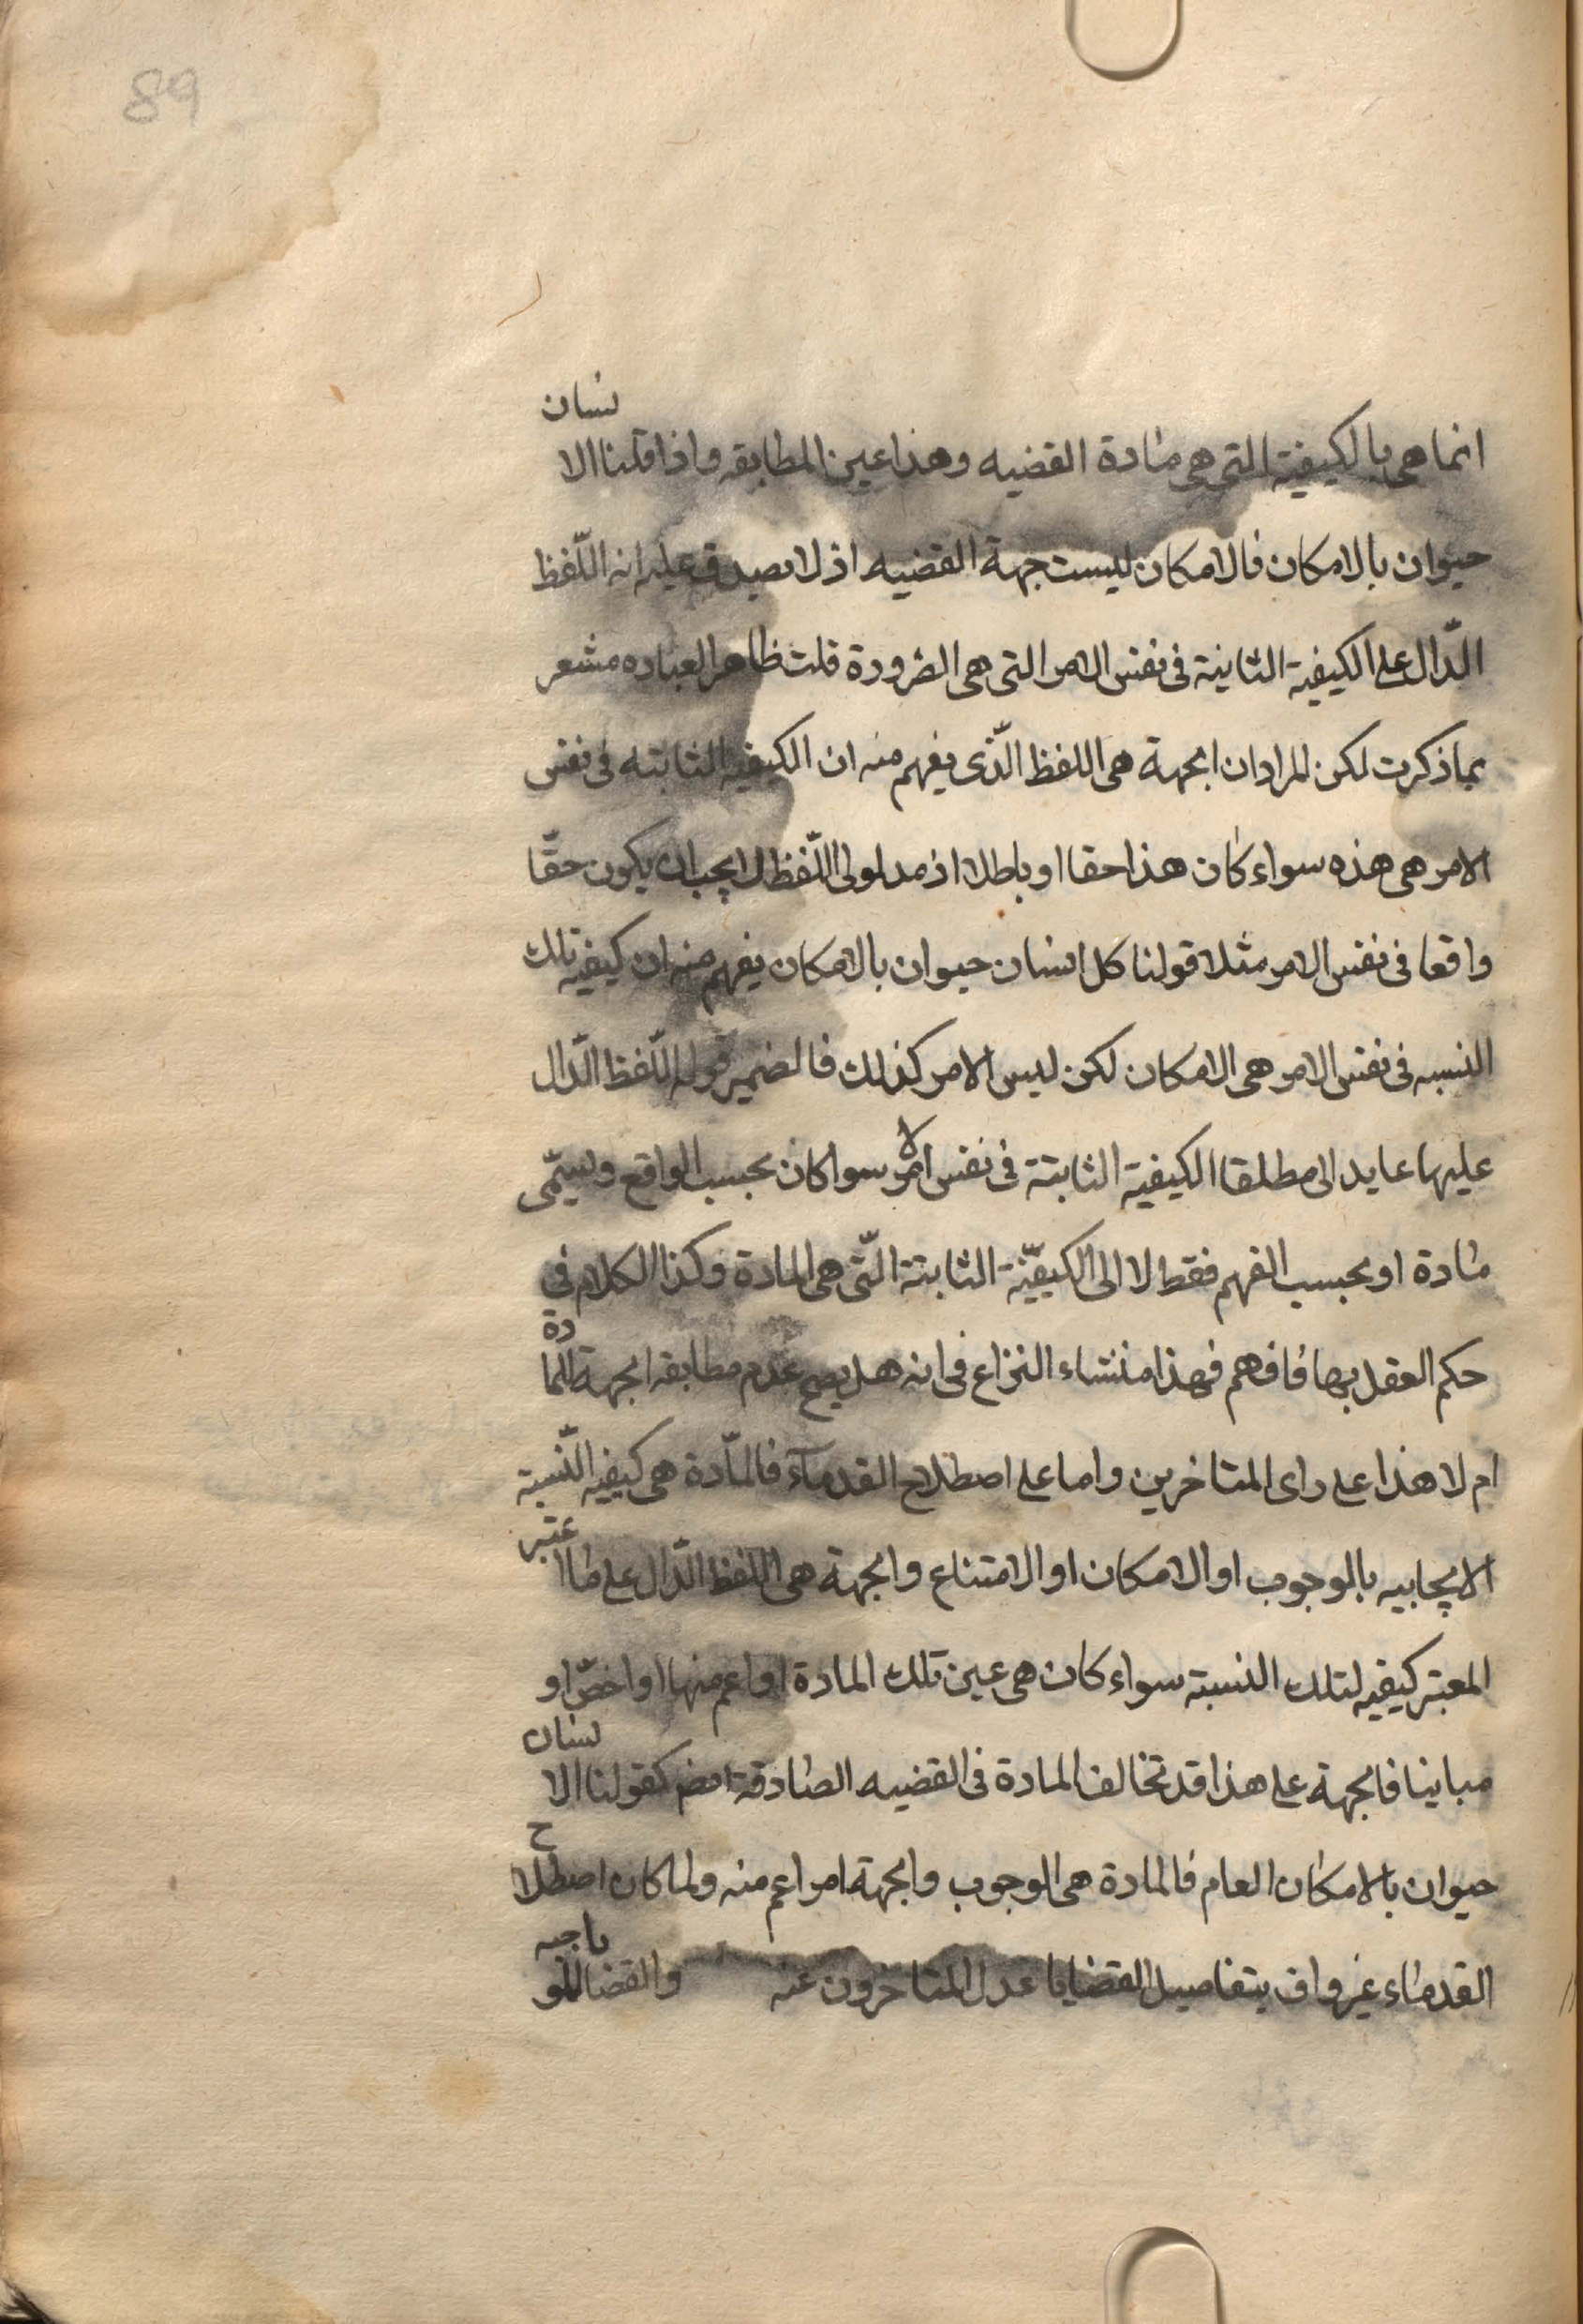 89
انما هى بالكيفية التى هى مادة القضيه وهذا عين المطابقه واذا قلنا الانسان
حيوان بالامكان فالامكان ليست جهة القضيه اذ لا يصدق عليه انه اللّفظ
الدّال على الكيفية الثابتة فى نفس الامر التى هى الضرورة قلت ظاهر العباره مشعر
بما ذكرت لكن المراد ان الجهة هى اللفظ الّذى يفهم منه ان الكيفية الثابتة فى نفس
الامر هى هذه سواء كان هذا حقا او باطلا اذ مدلول اللّفظ لا يجب ان يكون حقّا
واقعا فى نفس الامر مثلا قولنا كل انسان حيوان بالامكان يفهم منه ان كيفية تلك
النسبه فى نفس الامر هى الامكان لكن ليس الامر كذلك فالضمير قوله اللّفظ الدّال
عليها عايد الى مطلقا الكيفية الثابتة فى نفس الامر سوا كان بحسب الواقع ويسمّى
مادة او بحسب الفهم فقط لا الى الكيفيّة الثابتة الّتى هى المادة وكذا الكلام فى
حكم العقل بها فافهم فهذا منشاء النزاع فى انه هل يصح عدم مطابقه الجهة المادة
ام لا هذا على راى المتاخرين واما على اصطلاح القدمآء فالمادّة هى كيفيه النّسبة
الايجابيه بالوجوب او الامكان او الامتناع والجهة هى اللفظ الدّال على ما اعتبر
المعتبر كيفيه لتلك النسبة سواء كان هى عين تلك المادة او اعم منها او اخصّ او
مباينا فالجهة على هذا قد تخالف المادة فى القضيه الصادقة ايضم كقولنا الانسان
حيوان بالامكان العام فالمادة هى الوجوب والجهة امر اعم منه ولما كان اصطلاح
القدماء غير واف بتفاصيل القضايا عدل المتاخرون عنه والقضا للمو ياجبه